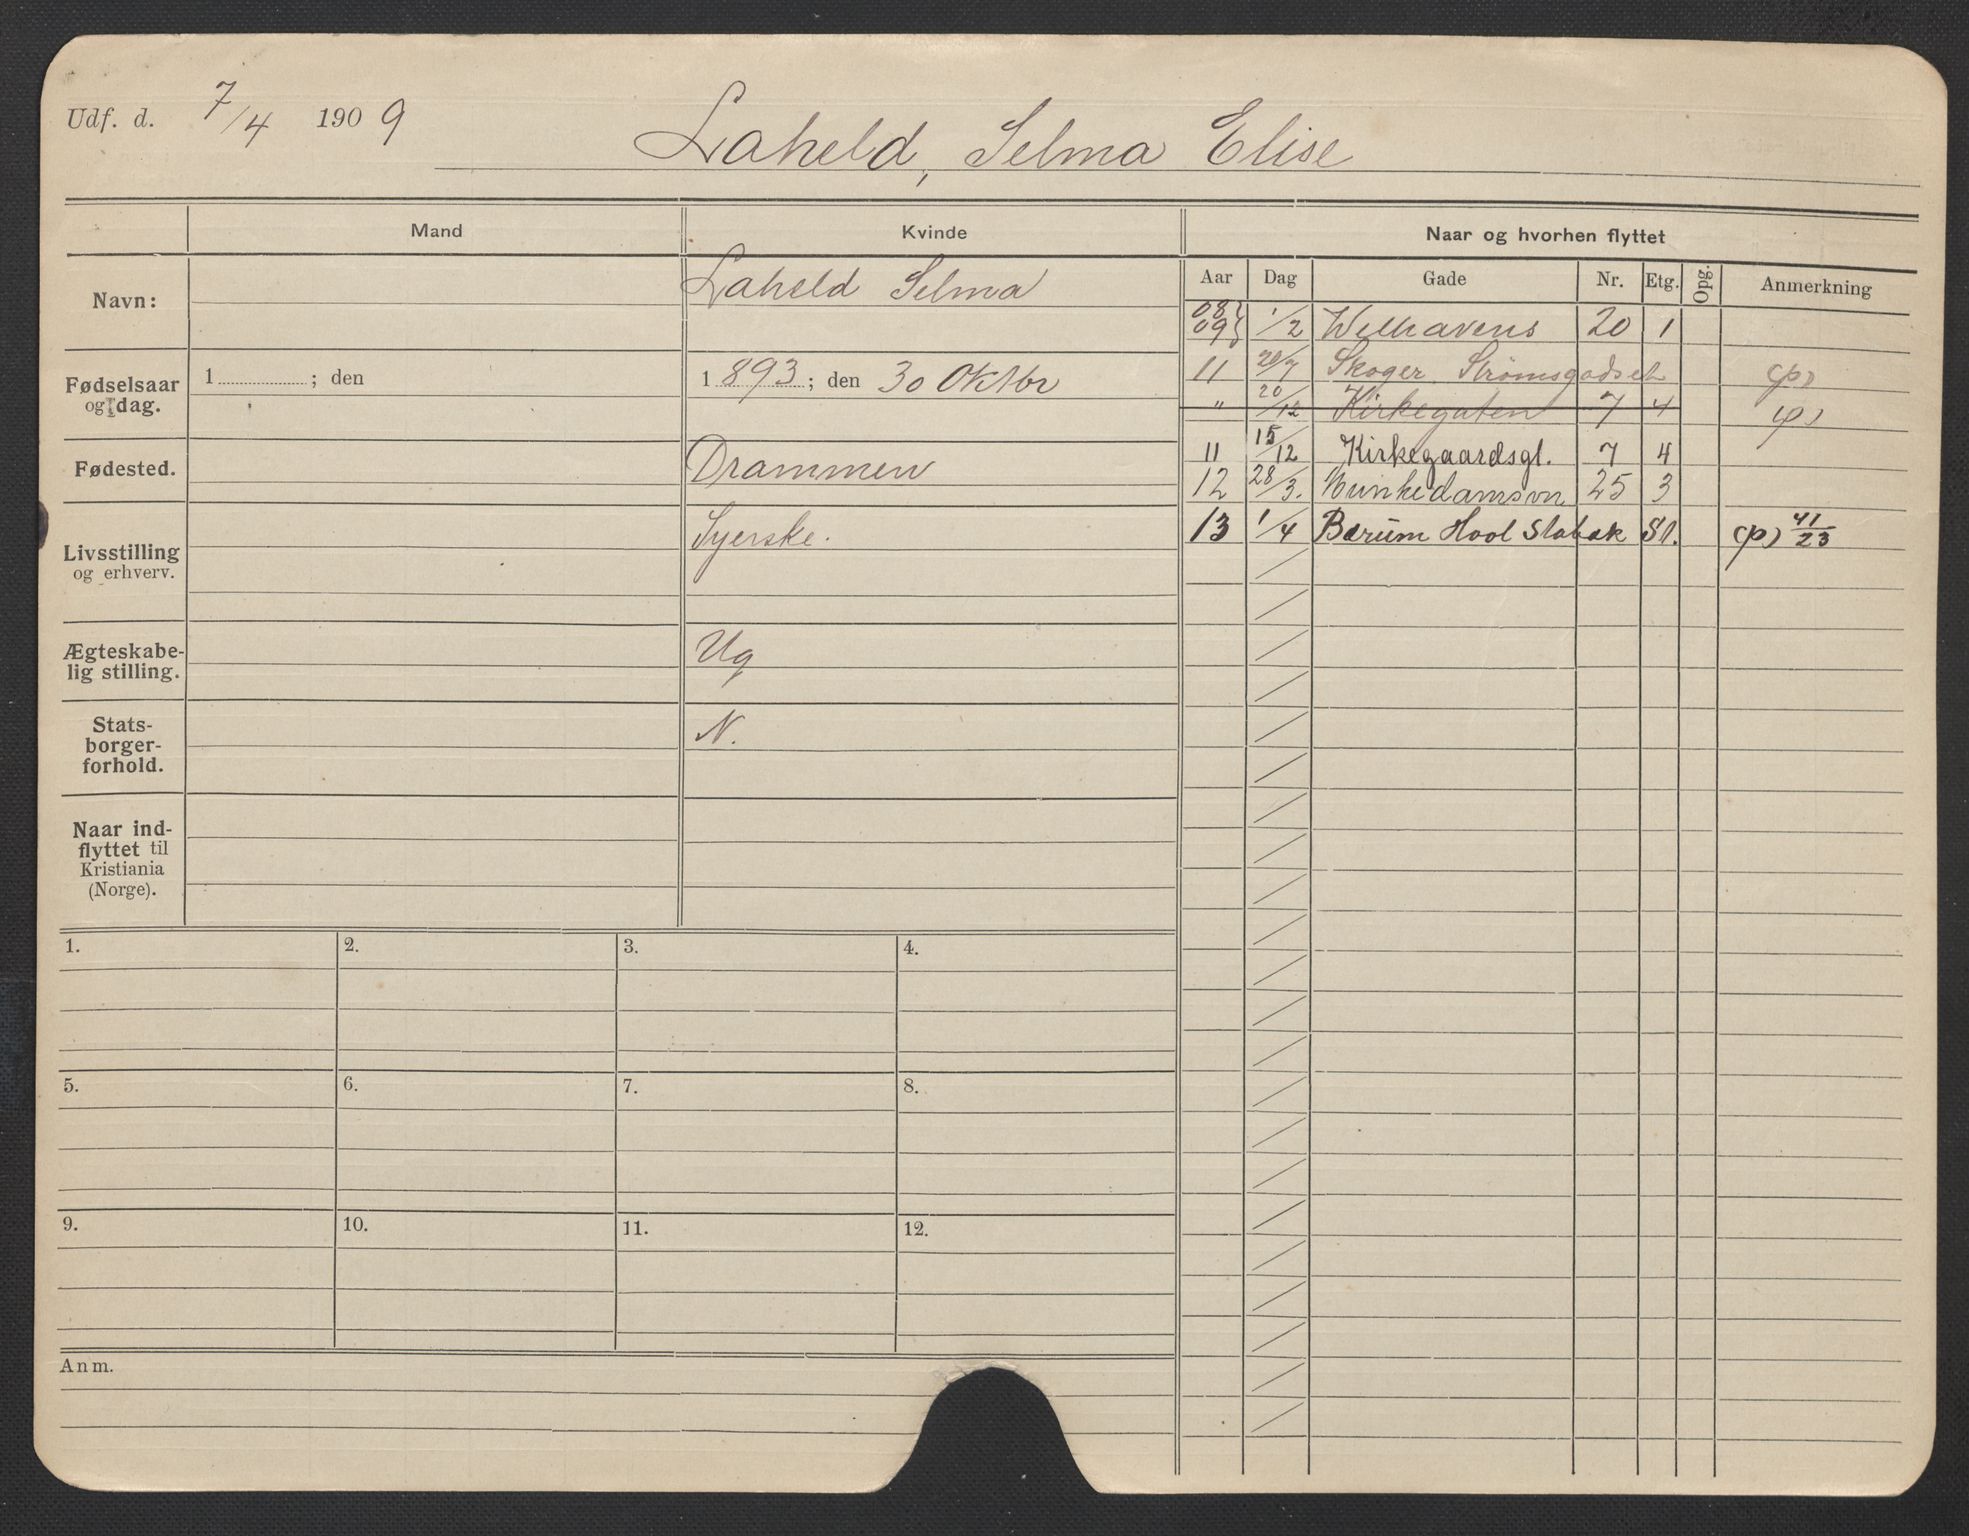 Udf. d. 7/4 1909 Laheld, Selma Elise
Mand Kvinde Naar og hvorhen flyttet
Aar Dag Gade Nr. Etg. Opg. Anmerkning
Navn: Laheld Selma
Fødselsaar og dag. 1 ; den 1893; den 30 Oktbr
Fødested. Drammen
Livsstilling og erhverv. Syerske.
Ægteskabe-
lig stilling. Ug
Stats-
borger-
forhold. N.
Naar ind-
flyttet til
Kristiania
(Norge).
08 } 09 } 1/2 Welhavens 20 1
11 20/7 Skoger Strømsgodset (p)
" 20/12 Kirkegaten 7 4 (p)
11 15/12 Kirkegaardsgt. 7 4
12 28/3. Munkedamsvn 25 3
13 1/4 Bærum Hool Stabæk St. (p) 41/23
1. 2. 3. 4.
5. 6. 7. 8.
9. 10. 11. 12.
Anm.